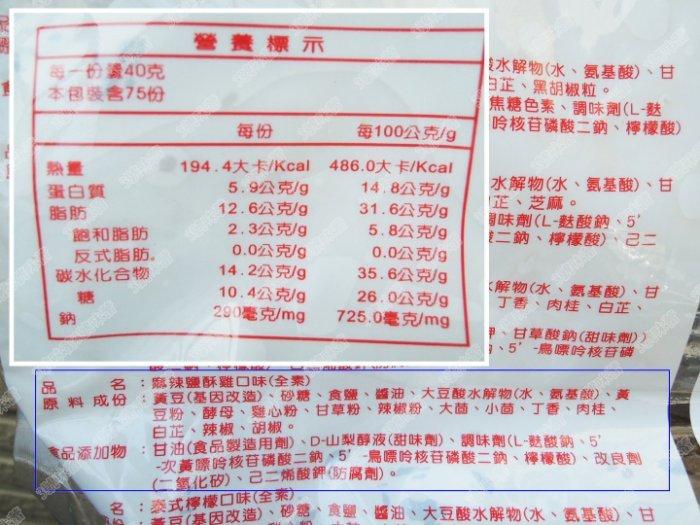 營養標示
每一份量40克
本包裝含75份
每份 每100公克/g
熱量 194.4大卡/Kcal 486.0大卡/Kcal
蛋白質 5.9公克/g 14.8公克/g
脂肪 12.6公克/g 31.6公克/g
飽和脂肪 2.3公克/g 5.8公克/g
反式脂肪。 0.0公克/g 0.0公克/g
碳水化合物 14.2公克/g 35.6公克/g
糖 10.4公克/g 26.0公克/g
鈉 290毫克/mg 725.0毫克/mg
酸水解物(水、氨基酸)、甘
白芷、黑胡椒粒。
焦糖色素、調味劑(L-麩
呤核苷磷酸二鈉、檸檬酸)
水解物(水、氨基酸)、甘
芷、芝麻。
調味劑(L-麩酸鈉、5'
二鈉、檸檬酸)、己二
解物(水、氨基酸)、甘
丁香、肉桂、白芷、
、甘草酸鈉(甜味劑))
、5'-鳥嘌呤核苷磷
品名:麻辣鹽酥雞口味(全素)
原料成份:黃豆(基因改造)、砂糖、食鹽、醬油、大豆酸水解物(水、氨基酸)、黃
豆粉、酵母、雞心粉、甘草粉、辣椒粉、大茴、小茴、丁香、肉桂、
白芷、辣椒、胡椒。
食品添加物:甘油(食品製造用劑)、D-山梨醇液(甜味劑)、調味劑(L-麩酸鈉、5'
-次黃嘌呤核苷磷酸二鈉、5'-鳥嘌呤核苷磷酸二鈉、檸檬酸)、改良劑
(二氧化矽)、己二烯酸鉀(防腐劑)。
品名:泰式檸檬口味(全素)
黃豆(基因改造)、砂糖、食鹽、醬油、大豆酸水解物(水、氨基酸)、甘